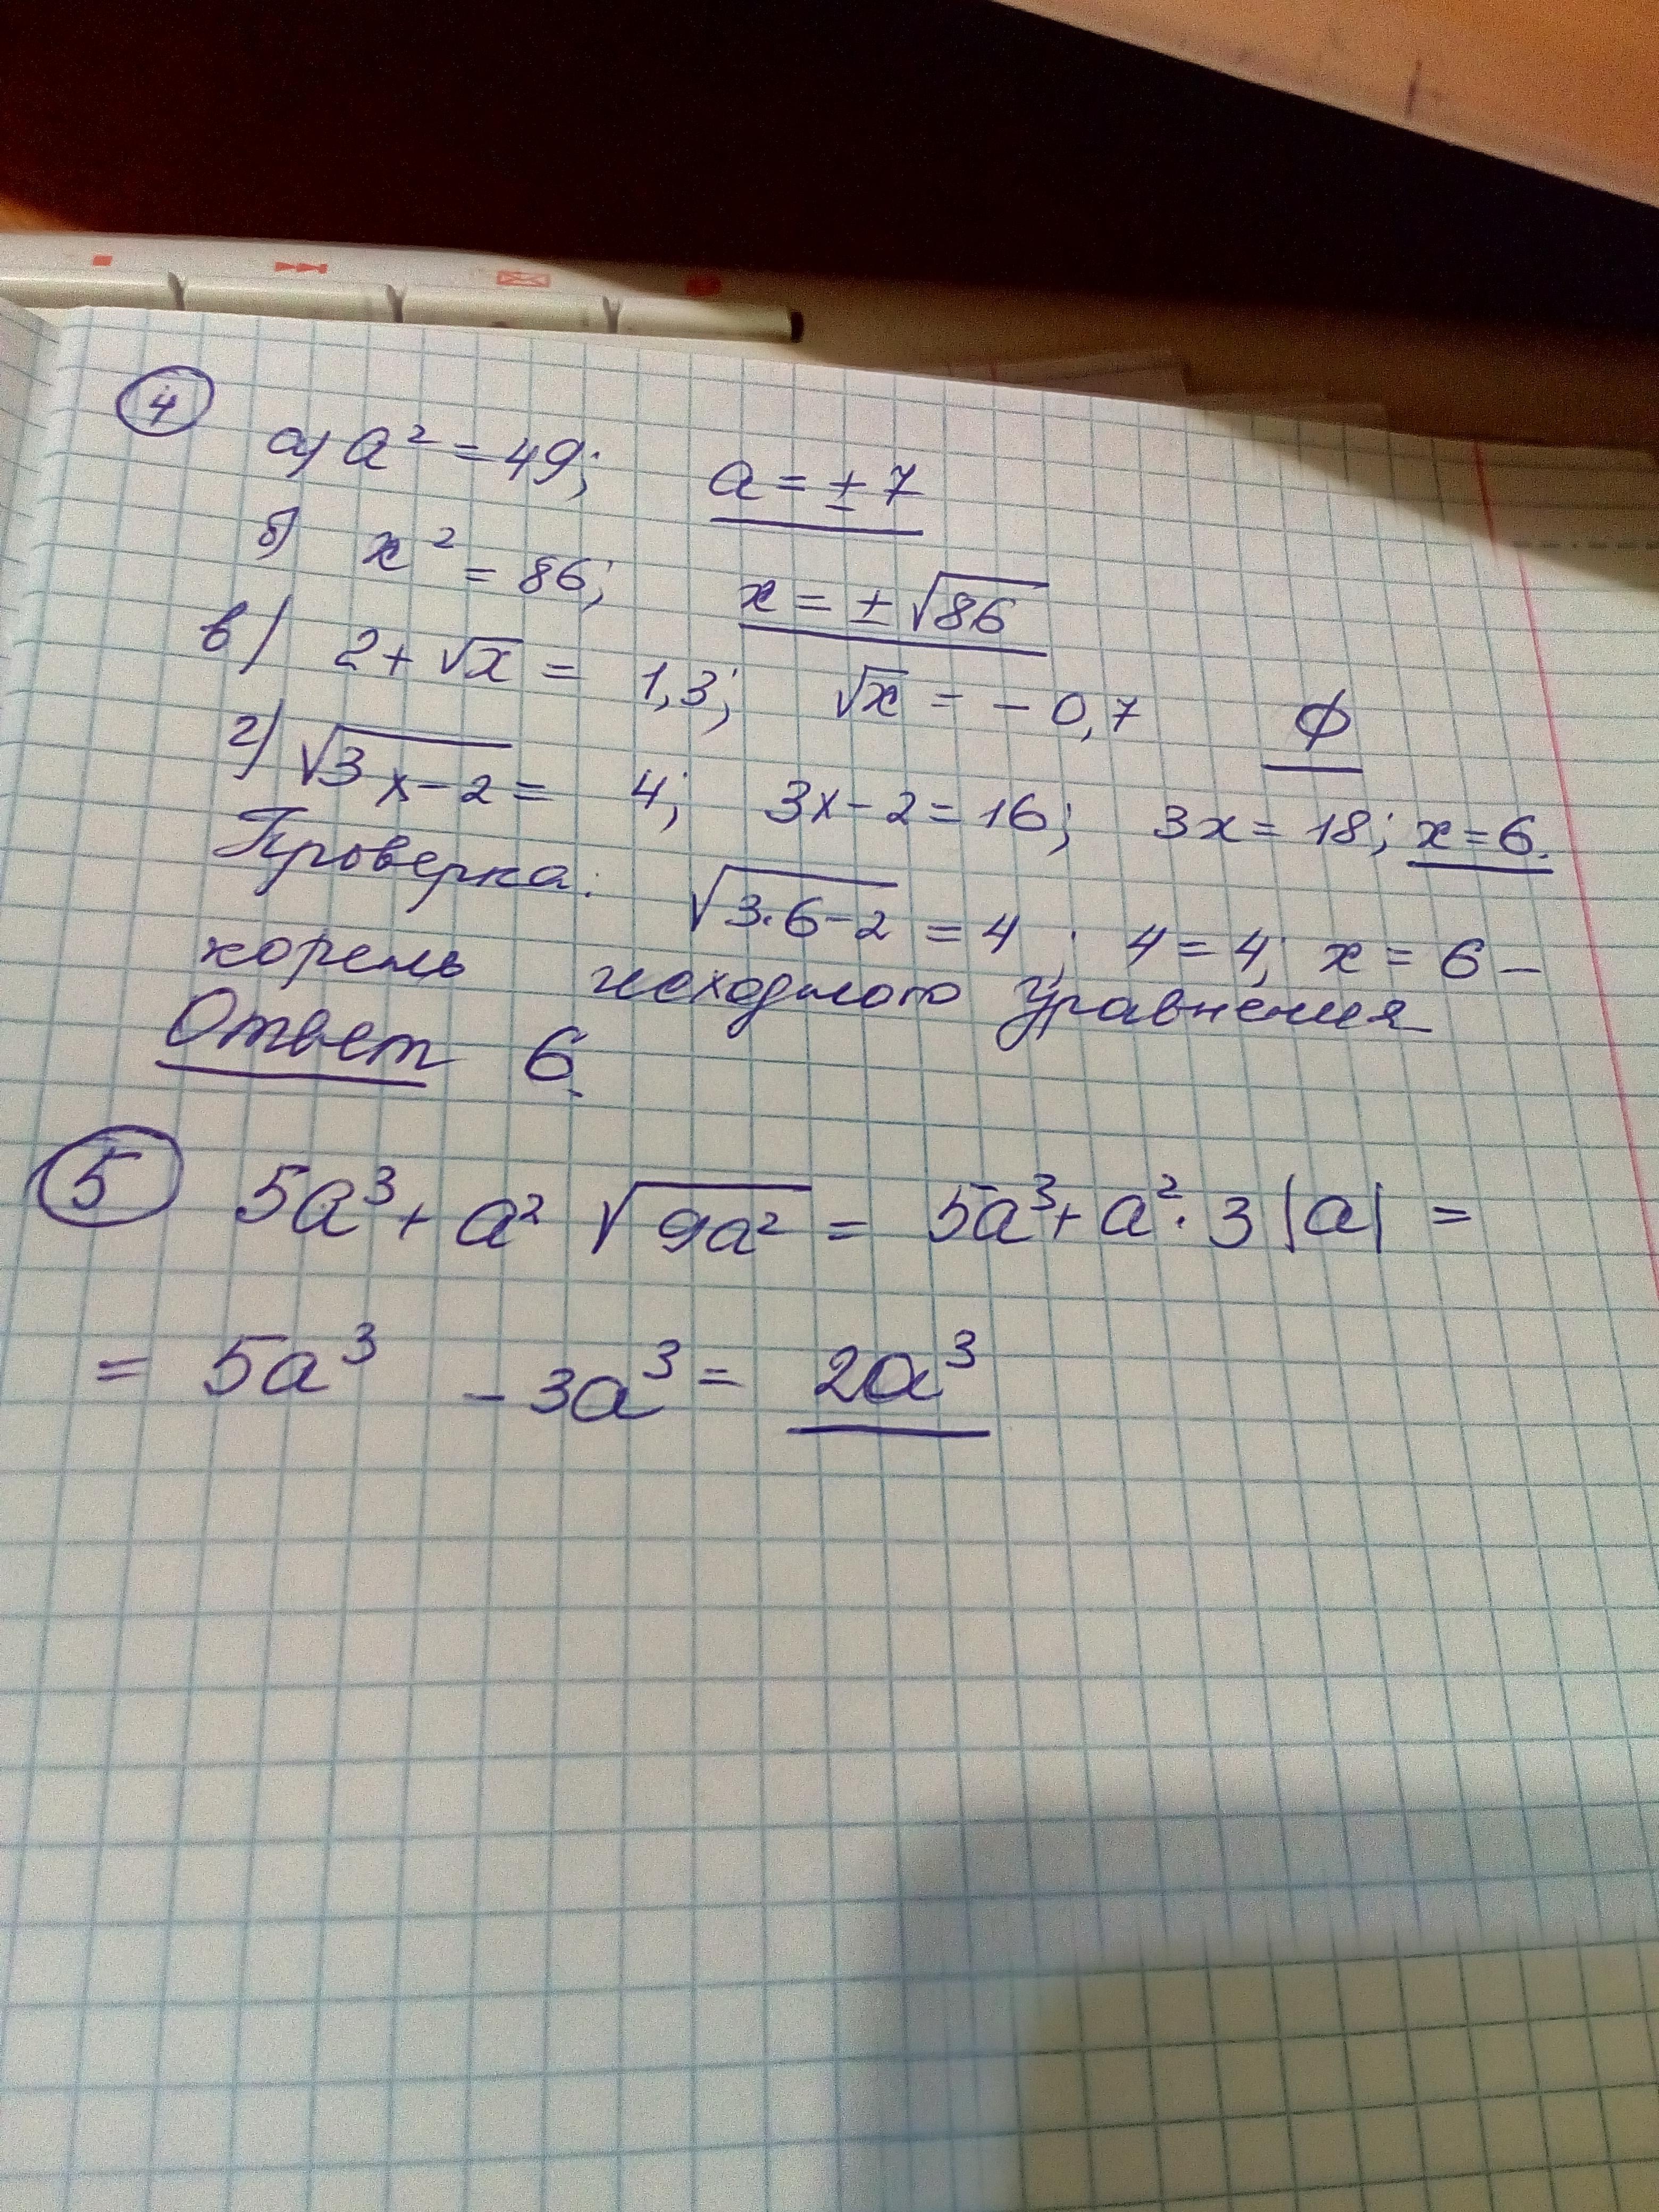 4
а) a² = 49; a = ± 7
б) x² = 86; x = ± √86
в) 2 + √x = 1,3; √x = - 0,7 ∅
г) √3x-2 = 4; 3x - 2 = 16; 3x = 18; x = 6.
Проверка: √3·6-2 = 4; 4 = 4; x = 6 –
корень исходного уравнения
Ответ 6.
5 5a³ + a² √9a² = 5a³ + a² · 3|a| =
= 5a³ - 3a³ = 2a³